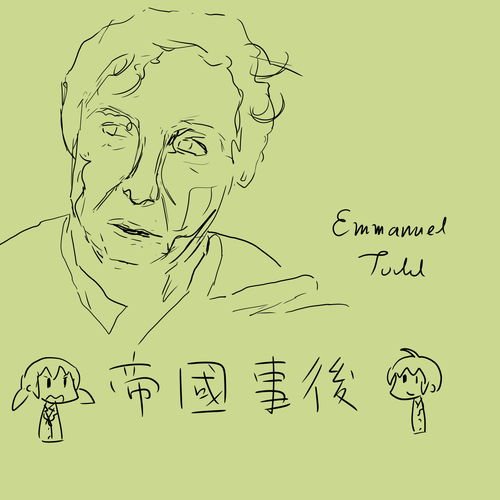 Emmanuel
Todd
帝國事後